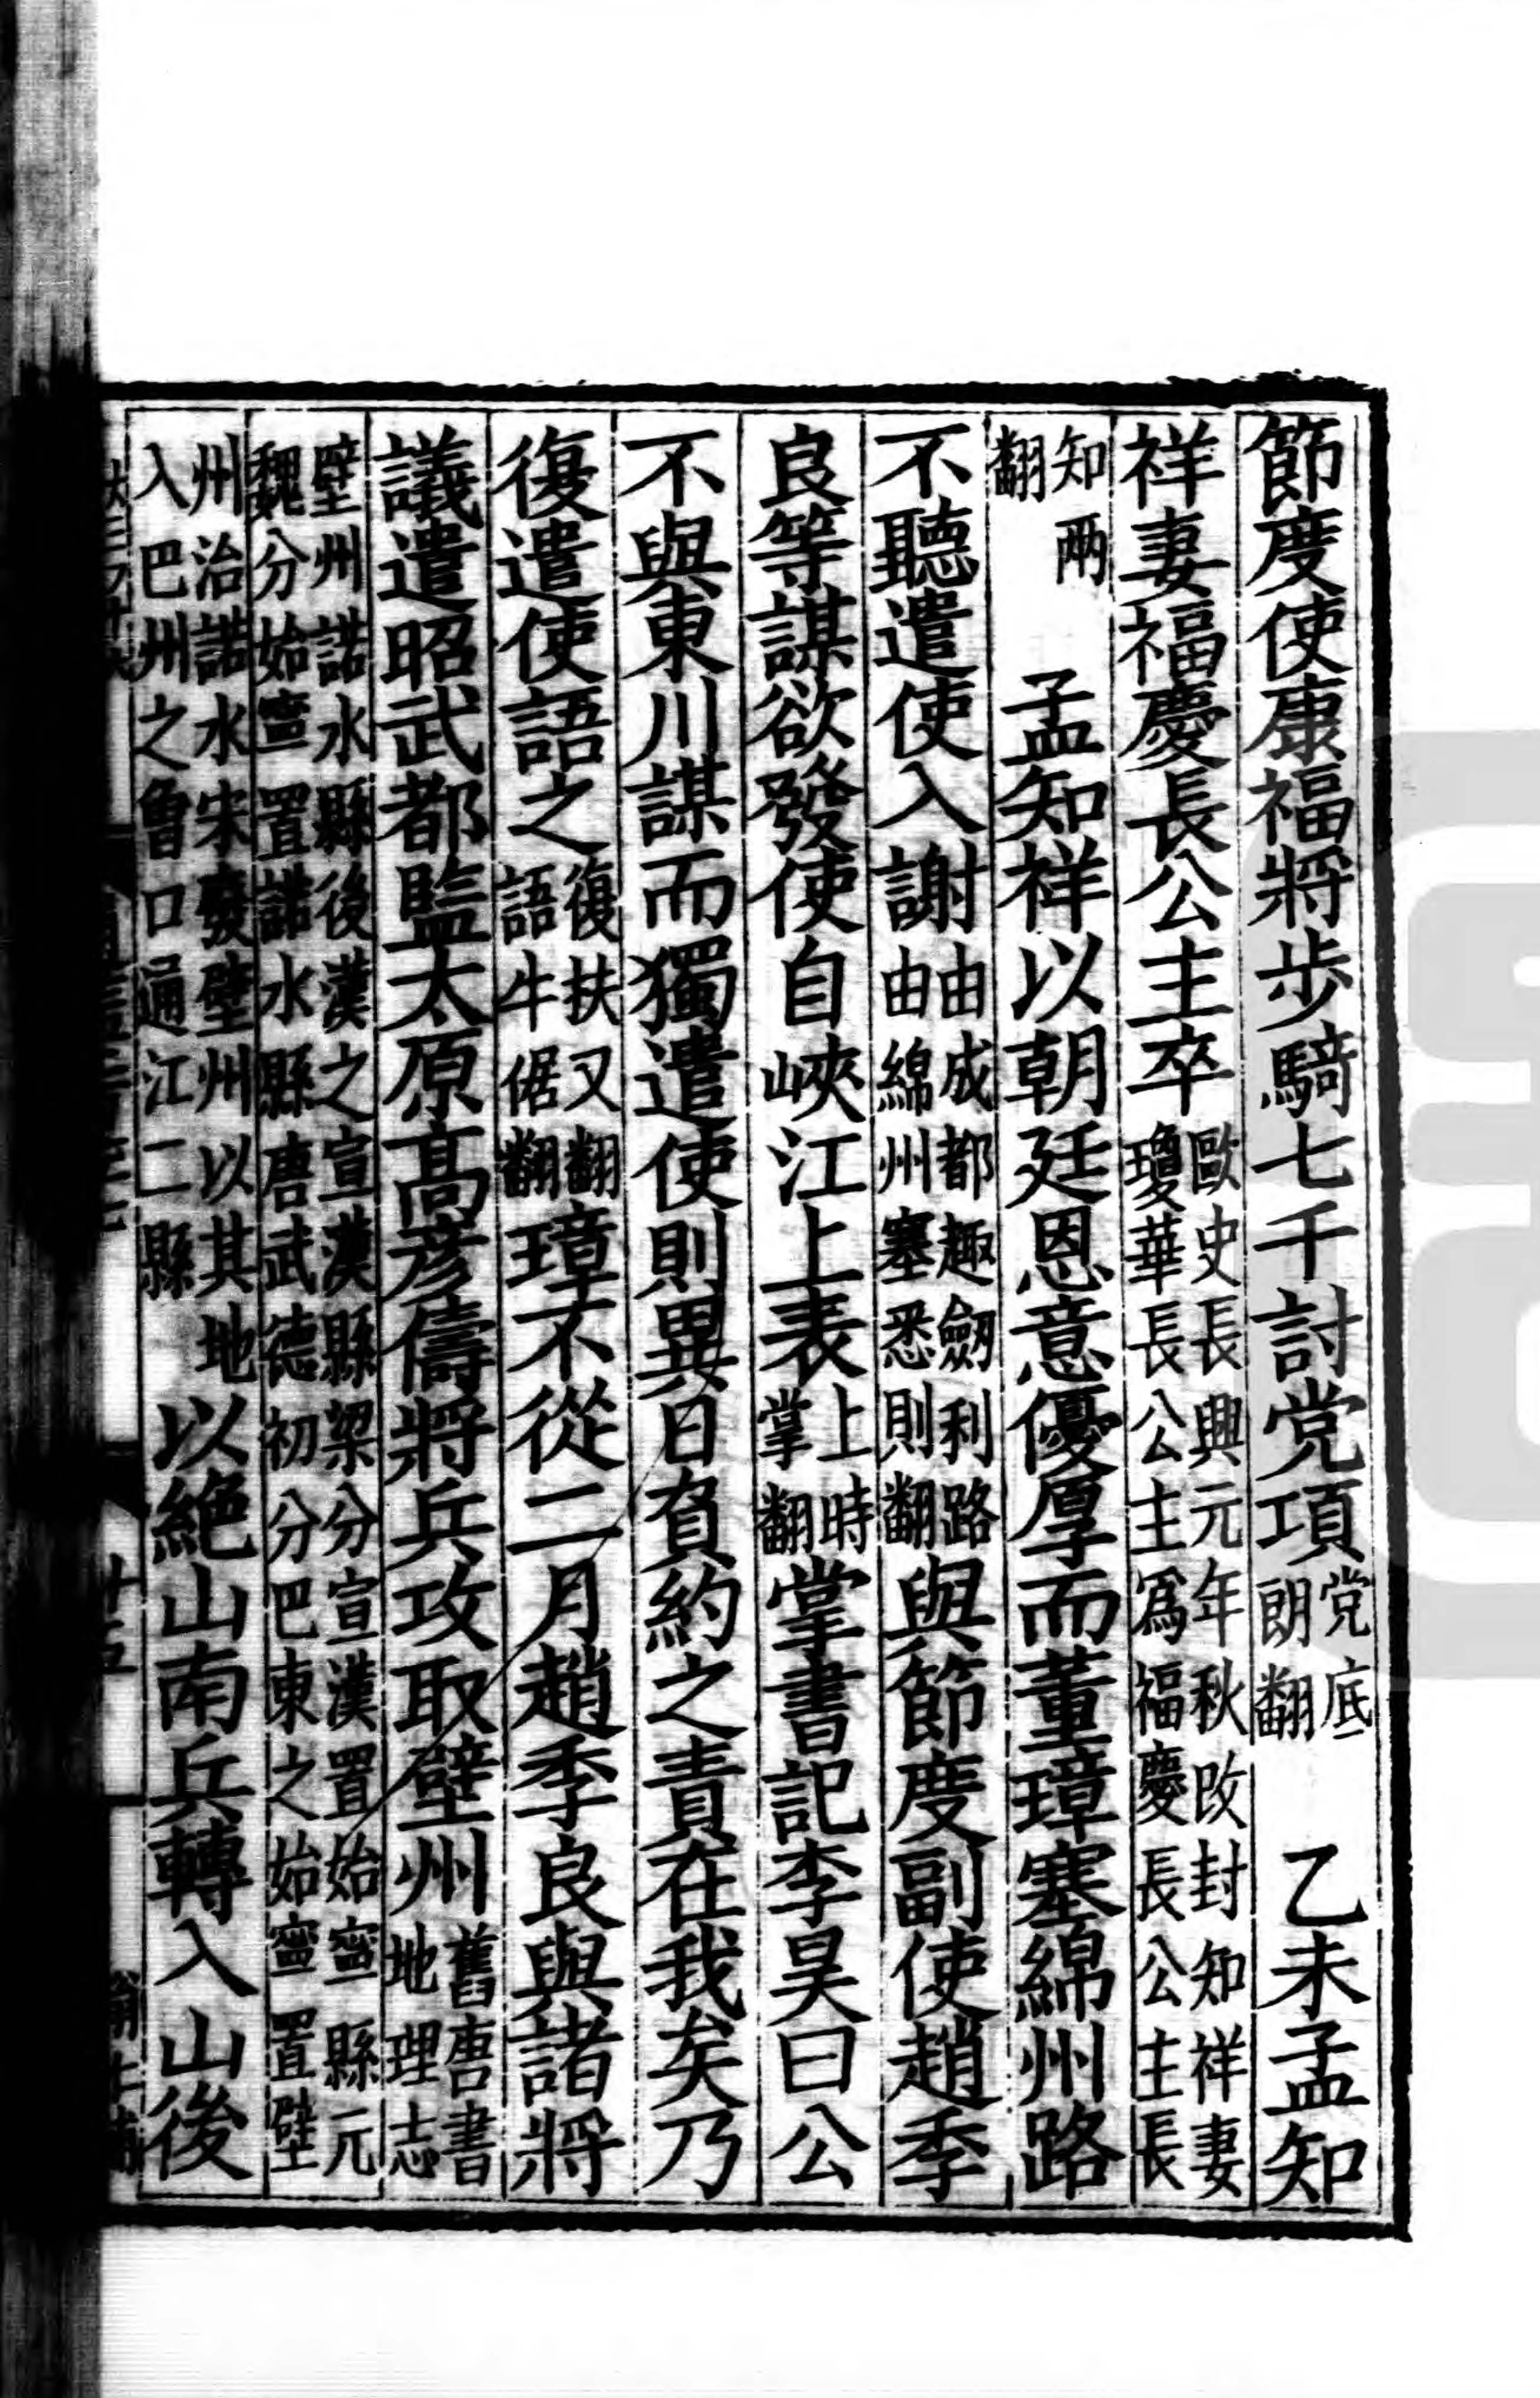 節度使康福將步騎七千討党項党底朗翻　乙未孟知
祥妻福慶長公主卒歐史長興元年秋改封知祥妻瓊華長公主爲福慶長公主長
知兩翻　孟知祥以朝廷恩意優厚而董璋塞綿州路
不聽遣使入謝由成都趣劒利路由綿州塞悉則翻與節度副使趙季
良等謀欲發使自峽江上表上時掌翻掌書記李昊曰公
不與東川謀而獨遣使則異日負約之責在我矣乃
復遣使語之復扶又翻語牛倨翻璋不從二月趙季良與諸將
議遣昭武都監太原高彥儔將兵攻取壁州舊唐書地理志
壁州諾水縣後漢之宣漢縣梁分宣漢置始寧縣元魏分始寧置諾水縣唐武德初分巴東之始寧置壁
州治諾水宋廢壁州以其地入巴州之曾口通江二縣以絕山南兵轉入山後